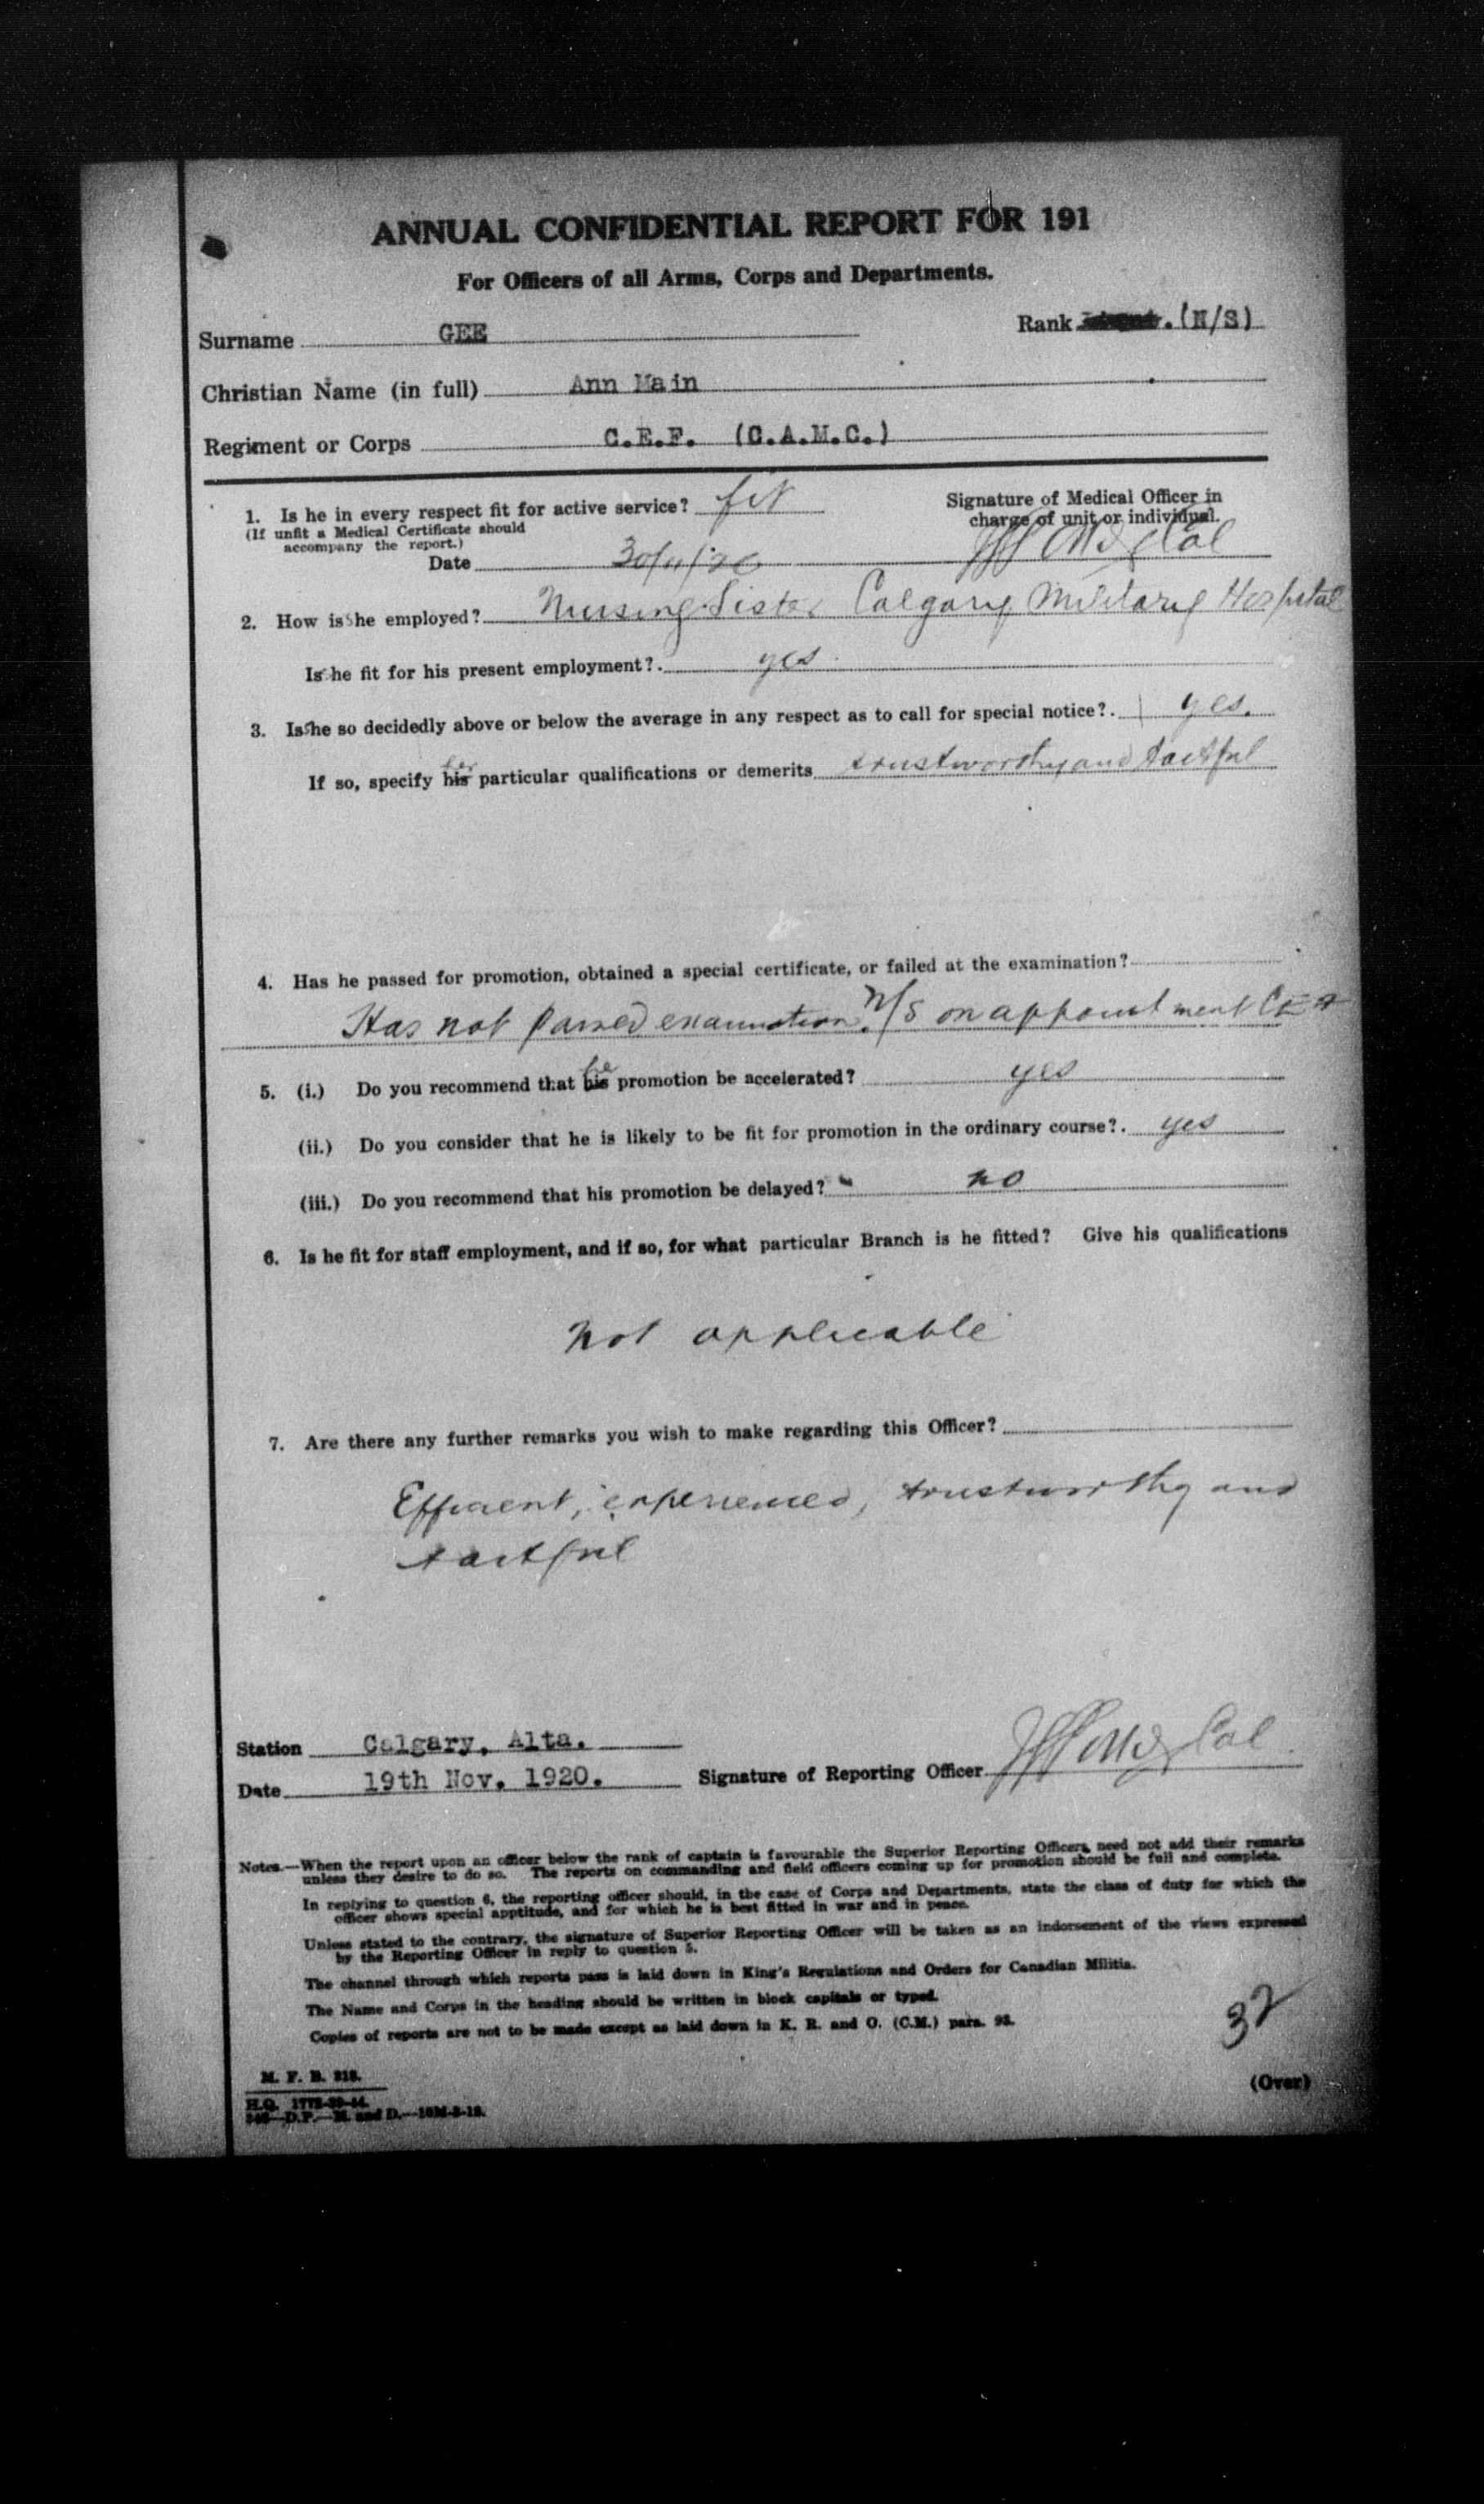 ANNUAL CONFIDENTIAL REPORT FOR 191
For Officers of all Arms, Corps and Departments.
Surname GEE Rank (N/S)
Christian Name (in full) Ann Main
Regiment or Corps C.E.F. (C.A.M.C.)
1. Is he in every respect fit for active service? fit Signature of Medical Officer in
(If unfit a Medical Certificate should charge of unit or individual.
accompany the report.)
Date 30/11/20 Col
2. How is she employed? Nursing Sister Calgary Military Hospital
Is she fit for his present employment? yes
3. Is she so decidedly above or below the average in any respect as to call for special notice? yes.
If so, specify his her particular qualifications or demerits trustworthy and tactful
4. Has he passed for promotion, obtained a special certificate, or failed at the examination?
Has not passed examination. N/S on appointment
5. (i.) Do you recommend that his promotion be accelerated? yes
(ii.) Do you consider that he is likely to be fit for promotion in the ordinary course? yes
(iii.) Do you recommend that his promotion be delayed? no
6. Is he fit for staff employment, and if so, for what particular Branch is he fitted? Give his qualifications
Not applicable
7. Are there any further remarks you wish to make regarding this Officer?
Efficient, experienced, trustworthy and
tactful
Station Calgary, Alta.
Date 19th Nov. 1920. Signature of Reporting Officer Col
Notes.—When the report upon an officer below the rank of captain is favourable the Superior Reporting Officers need not add their remarks
unless they desire to do so. The reports on commanding and field officers coming up for promotion should be full and complete.
In replying to question 6, the reporting officer should, in the case of Corps and Departments, state the class of duty for which the
officer shows special apptitude, and for which he is best fitted in war and in peace.
Unless stated to the contrary, the signature of Superior Reporting Officer will be taken as an indorsement of the views expressed
by the Reporting Officer in reply to question 5.
The channel through which reports pass is laid down in King's Regulations and Orders for Canadian Militia.
The Name and Corps in the heading should be written in block capitals or typed.
Copies of reports are not to be made except as laid down in K. R. and O. (C.M.) para. 93.
32
M. F. B. 313.
(Over)
H.Q.
D.P.—M. and D.